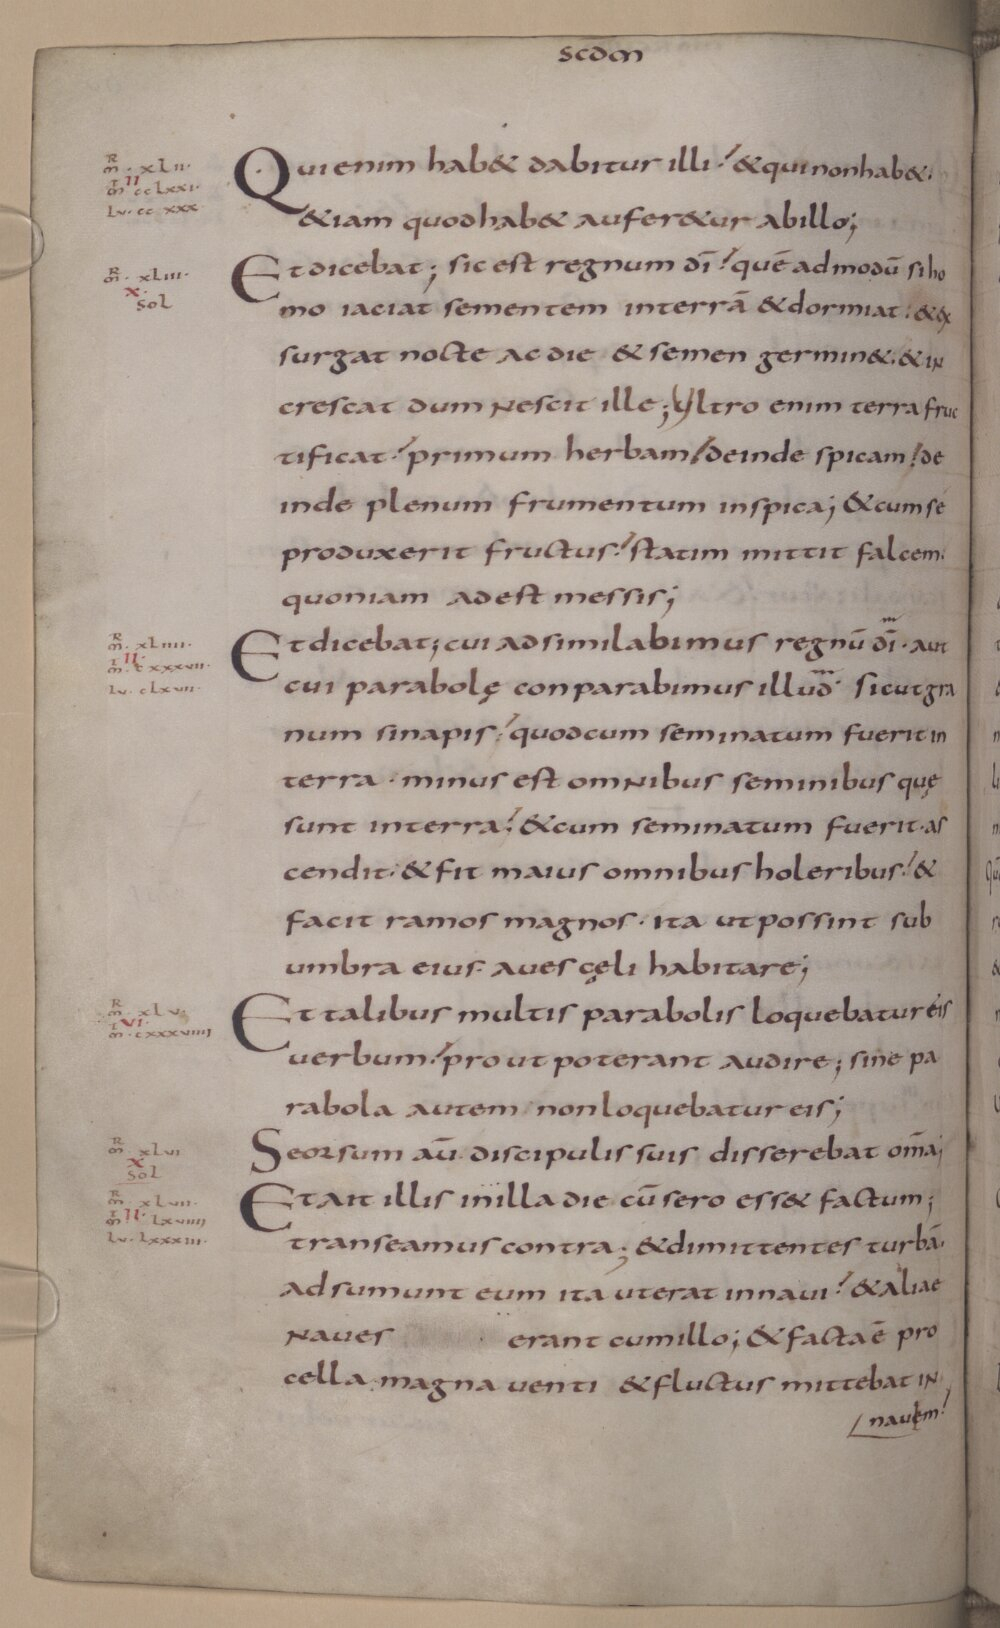 scdm
R
m · xlii ·
II
m cclxxi ·
lu · cc xxx
Qui enim hab& dabitur illi · & qui non hab& ·
& iam quod hab& aufer&ur ab illo;
R
m · xliii ·
x ·
sol
Et dicebat; sic est regnum dī · quē ad modū si ho
mo iaciat sementem in terrā & dormiat · & ex
surgat nocte ac die & semen germin& · & in
crescat dum nescit ille; Vltro enim terra fruc
tificat · primum herbam deinde spicam · de
inde plenum frumentum in spica; & cum se
produxerit fructus · statim mittit falcem ·
quoniam adest messis;
R
m · xliiii ·
II ·
m · cxxxvii ·
lu · clxvii ·
Et dicebat; cui adsimilabimus regnū dī · aut
cui parabolę conparabimus illud · sicut gra
num sinapis · quod cum seminatum fuerit in
terra · minus est omnibus seminibus quę
sunt in terra; & cum seminatum fuerit · as
cendit · & fit maius omnibus holeribus · &
facit ramos magnos · ita ut possint sub
umbra eius aues cęli habitare;
R
m · xlv ·
VI ·
m · cxxxviiii
Et talibus multis parabolis loquebatur eis
uerbum · prout poterant audire; sine pa
rabola autem non loquebatur eis;
R
m · xlvi
x
sol
Seorsum aū discipulis suis disserebat om̄a;
R
m · xlvii ·
II ·
m lxviiii
lu · lxxxiii ·
Et ait illis in illa die cū sero ess& factum;
transeamus contra; & dimittentes turbā ·
adsumunt eum ita ut erat in naui · & aliae
naues erant cum illo; & facta ē pro
cella magna uenti & fluctus mittebat in
nauem ·